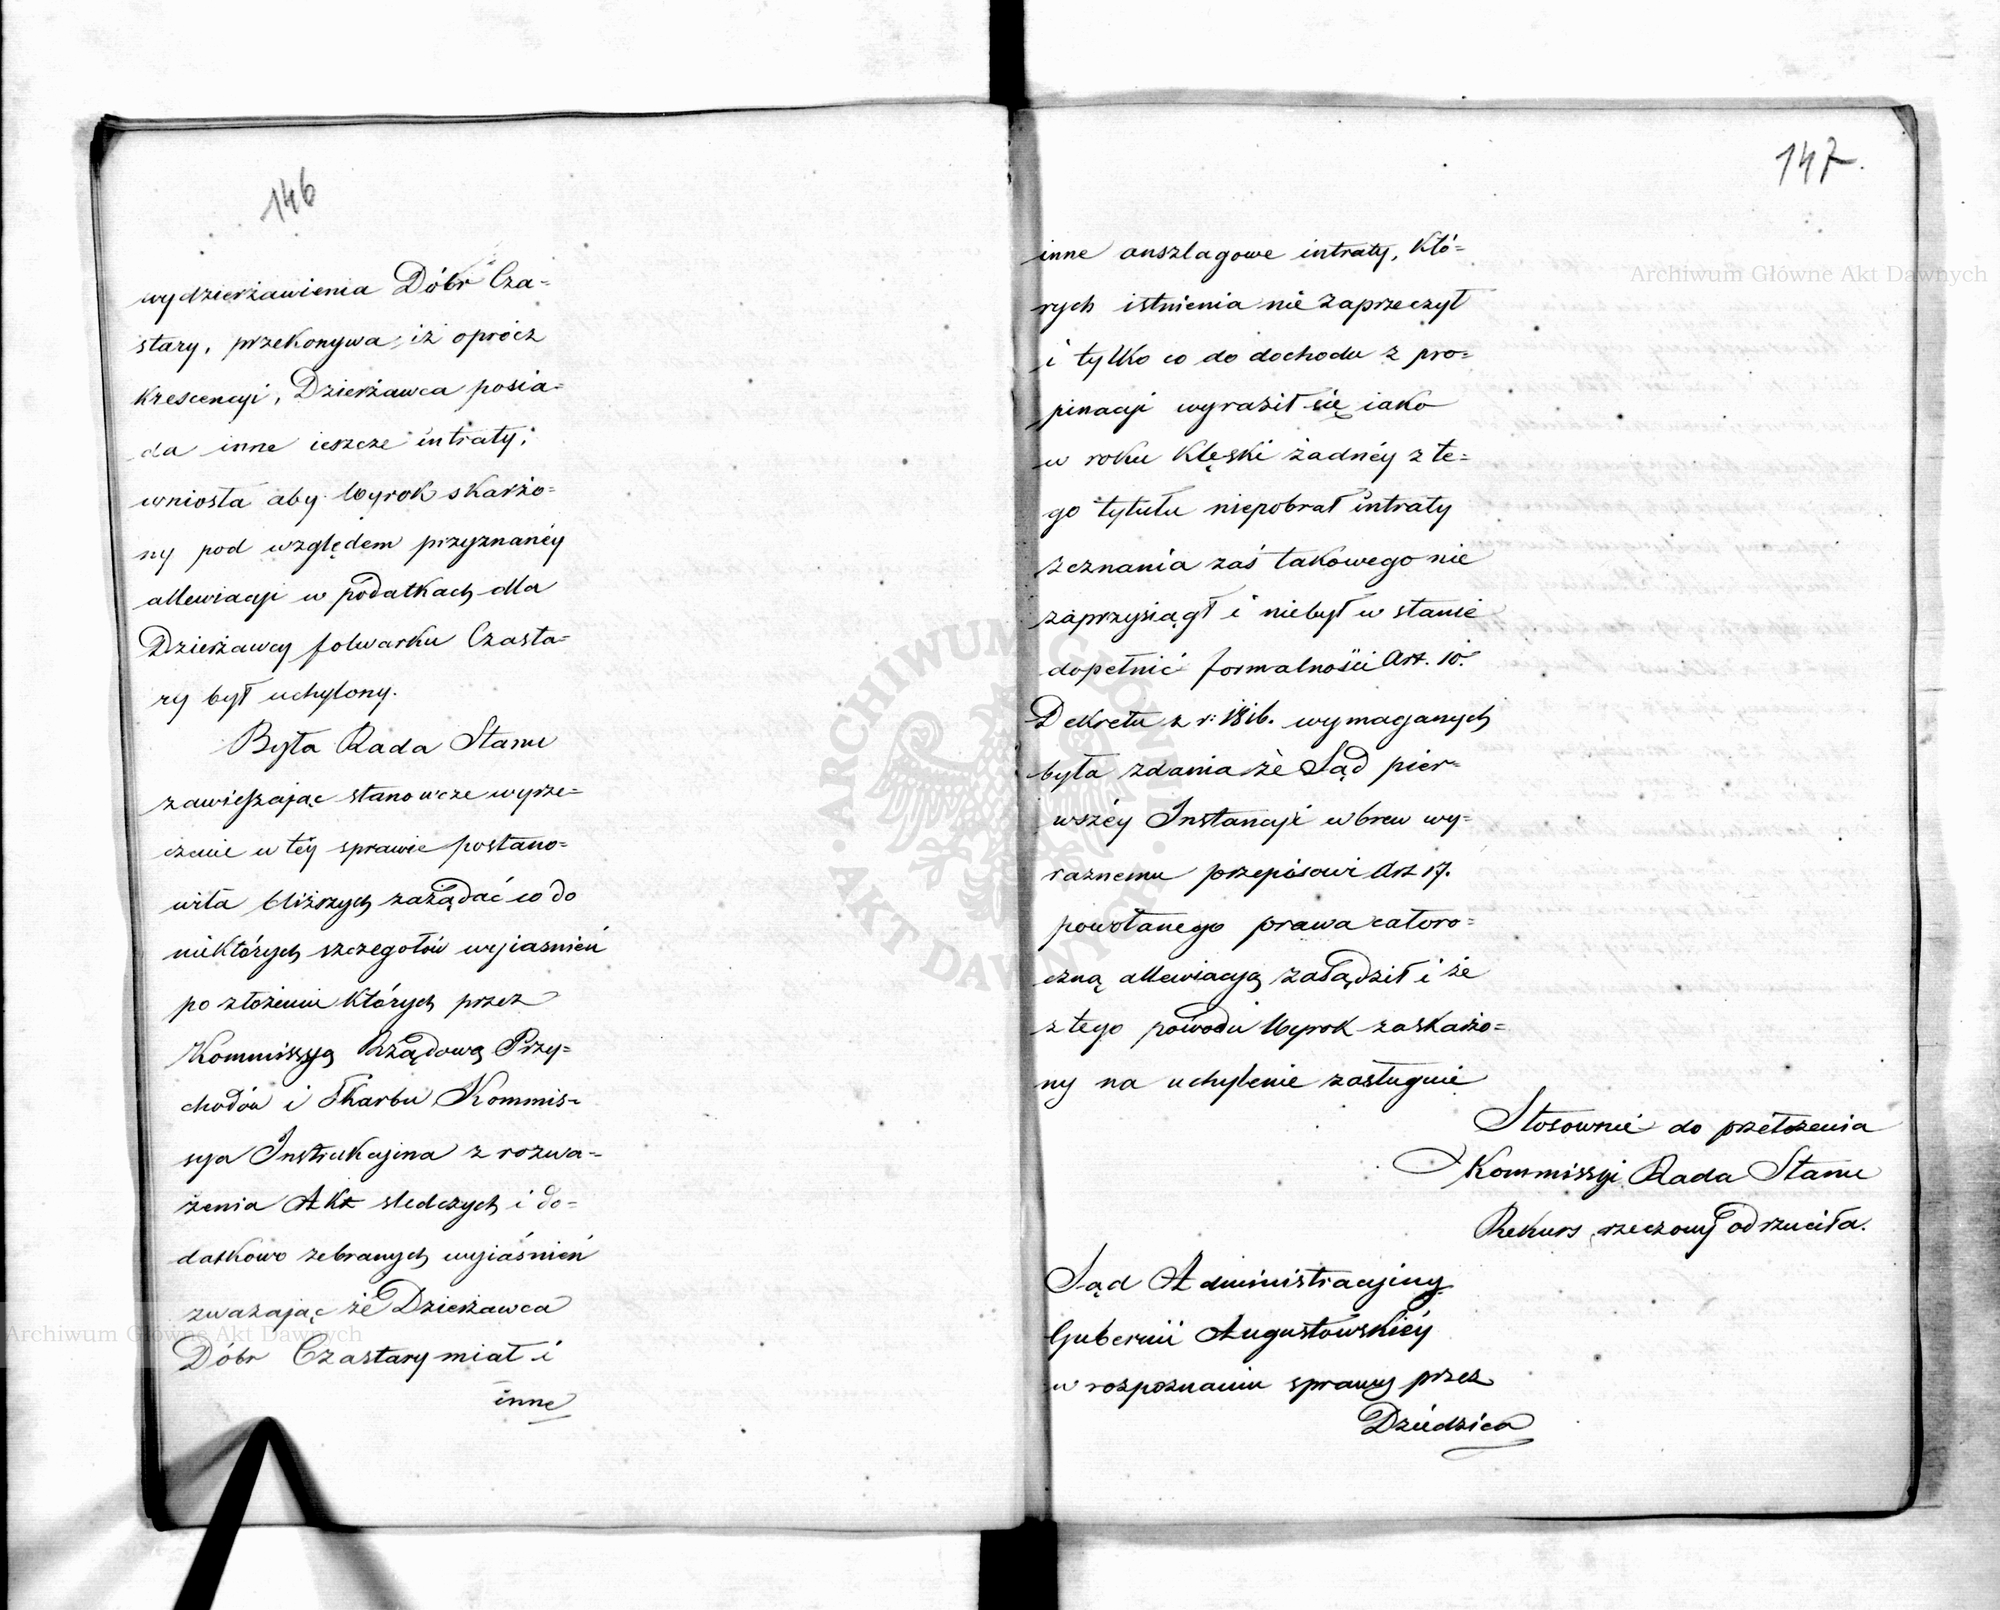 146
wydzierżawienia Dóbr Cza=
stary, przekonywa, iż oprócz
krescencyi, Dzierżawca posia=
da inne ieszcze intraty;
wniosła aby Wyrok skarżo=
ny pod względem przyznanéy
allewiacyi w podatkach dla
Dzierżawcy folwarku Czasta=
ry był uchylony.
Była Rada Stanu
zawieszając stanowcze wyrze=
czenie w téy sprawie postano=
wiła bliższych zażądać co do
niektórych szczegółów wyiasnień
po złożeniu których przez
Kommissyą Rządową Przy=
chodów i Skarbu Kommis=
sya Instrukcyina z rozwa=
żenia Akt śledczych i do=
datkowo zebranych wyiaśnień
zważając że Dzierżawca
Dóbr Czastary miał i
inne
147.
inne anszlagowe intraty, któ=
rych istnienia nie zaprzeczył
i tylko co do dochodu z pro=
pinacyi wyraził się iako
w roku klęski żadnéy z te=
go tytułu niepobrał intraty
zeznania zaś takowego nie
zaprzysiągł i niebył w stanie
dopełnić formalności Art. 10.
Dekretu z r: 1816. wymaganych
była zdania że Sąd pier=
wszéy Instancyi wbrew wy=
raznemu przepisowi Art 17.
powołanego prawa całoro=
czną allewiacyą zasądził i że
z tego powodu Wyrok zaskarżo=
ny na uchylenie zasługuie
Stosownie do przełożenia
Kommissyi Rada Stanu
Rekurs rzeczony odrzuciła.
Sąd Administracyiny
Gubernii Augustowskiéy
w rozpoznaniu sprawy przez
Dziedzica
Archiwum Główne Akt Dawnych
Archiwum Główne Akt Dawnych
ARCHIWUM GŁÓWNE AKT DAWNYCH